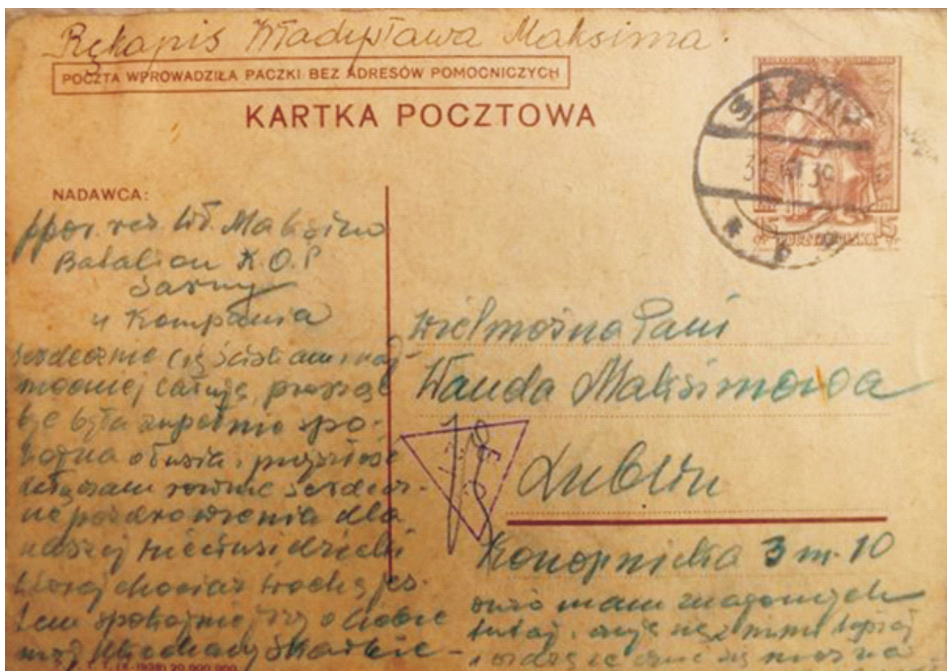 Rękopis Władysława Maksima.
POCZTA WPROWADZIŁA PACZKI BEZ ADRESÓW POMOCNICZYCH
KARTKA POCZTOWA
SARNY
31 39
15 15
NADAWCA:
ppor. rez. Wł. Maksim
Batalion K.O.P
Sarny
4 Kompania
serdecznie cię ściskam i naj
mocniej całuję, proszę
być była zupełnie spo-
kojna o
dołączam również serdecz-
ne pozdrowienia dla
naszej
której chociaż trochę jes-
tem spokojniejszy o Ciebie
mój kochany Skarbie -
Wielmożna Pani
Wanda Maksimowa
Lublin
Konopnicka 3 m. 10
mam znajomych
tutaj, czuję się z nimi lepiej
się można
(X-1938) 20.000.000